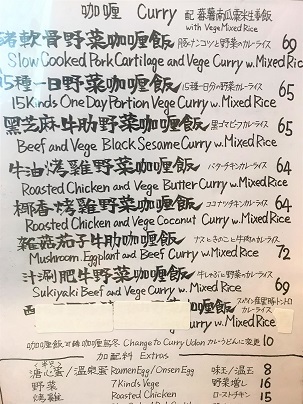 咖喱 Curry 配
with Vege Mixed Rice
豬軟骨野菜咖喱飯 豚ナンコツと野菜のカレーライス 69
Slow Cooked Pork Cartilage and Vege Curry w. Mixed Rice
15種一日野菜咖喱飯 15種・一日分の野菜カレーライス 65
15Kinds One Day Portion Vege Curry w. Mixed Rice
黑芝麻牛肋野菜咖喱飯 黒ゴマビーフカレーライス 65
Beef and Vege Black Sesame Curry w. Mixed Rice
牛油烤雞野菜咖喱飯 バターチキンカレーライス 64
Roasted Chicken and Vege Butter Curry w. Mixed Rice
椰香烤雞野菜咖喱飯 ココナツチキンカレーライス 64
Roasted Chicken and Vege Coconut Curry w. Mixed Rice
雜菇茄子牛肋咖喱飯 ナスときのこと牛肉のカレーライス 72
Mushroom. Eggplant and Beef Curry w. Mixed Rice
汁涮肥牛野菜咖喱飯 牛しゃぶと野菜のカレーライス 69
Sukiyaki Beef and Vege Curry w. Mixed Rice
西
Curry w. Mixed Rice
咖喱飯可轉咖喱烏冬 Change to Curry Udon カレーうどんに変更 10
加配料 Extros
溏心蛋/溫泉蛋 Ramen Egg/Onsen Egg 味玉/温玉 8
野菜 7Kinds Vege 野菜増し 16
烤雞 Roasted Chicken ローストチキン 15